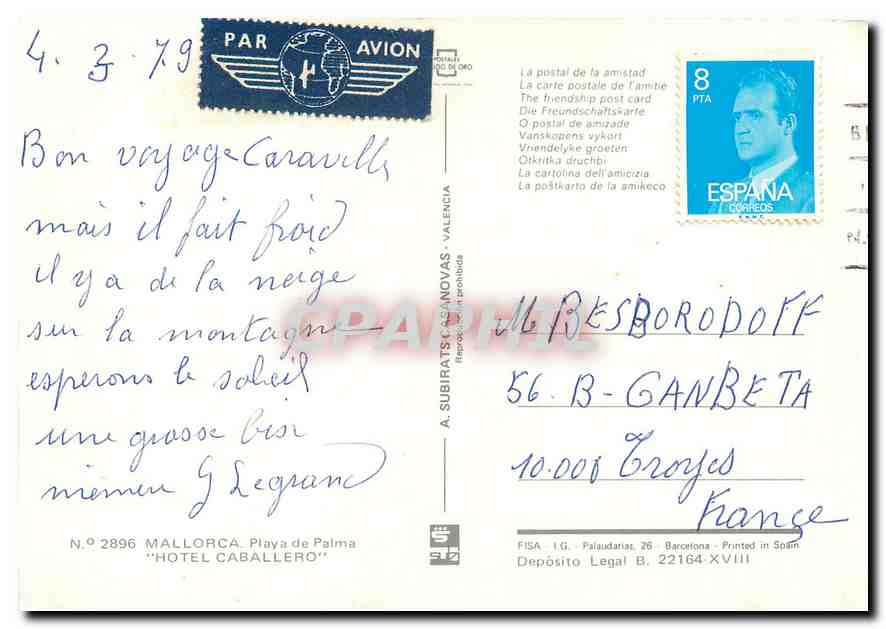 4. 3. 79
PAR AVION
Bon voyage Caravelle
mais il fait froid
il y a de la neige
sur la montagne
esperons le soleil
une grosse bise
G Legrand
N.º 2896 MALLORCA. Playa de Palma
"HOTEL CABALLERO"
A. SUBIRATS CASANOVAS - VALENCIA
Reproducción prohibida
POSTALES
DO DE ORO
La postal de la amistad
La carte postale de l'amitie
The friendship post card
Die Freundschaftskarte
O postal de amizade
Vanskopens vykort
Vriendelyke groeten
Otkritka druchbi
La cartolina dell'amicizia
La poŝtkarto de la amikeco
8
PTA
ESPAÑA
CORREOS
F.N.M.T.
M BESBORODOFF
56. B - GANBETA
10.000 Troyes
France
CPAPHIL
FISA - I.G. - Palaudarias, 26 - Barcelona - Printed in Spain
Depósito Legal B. 22164-XVIII